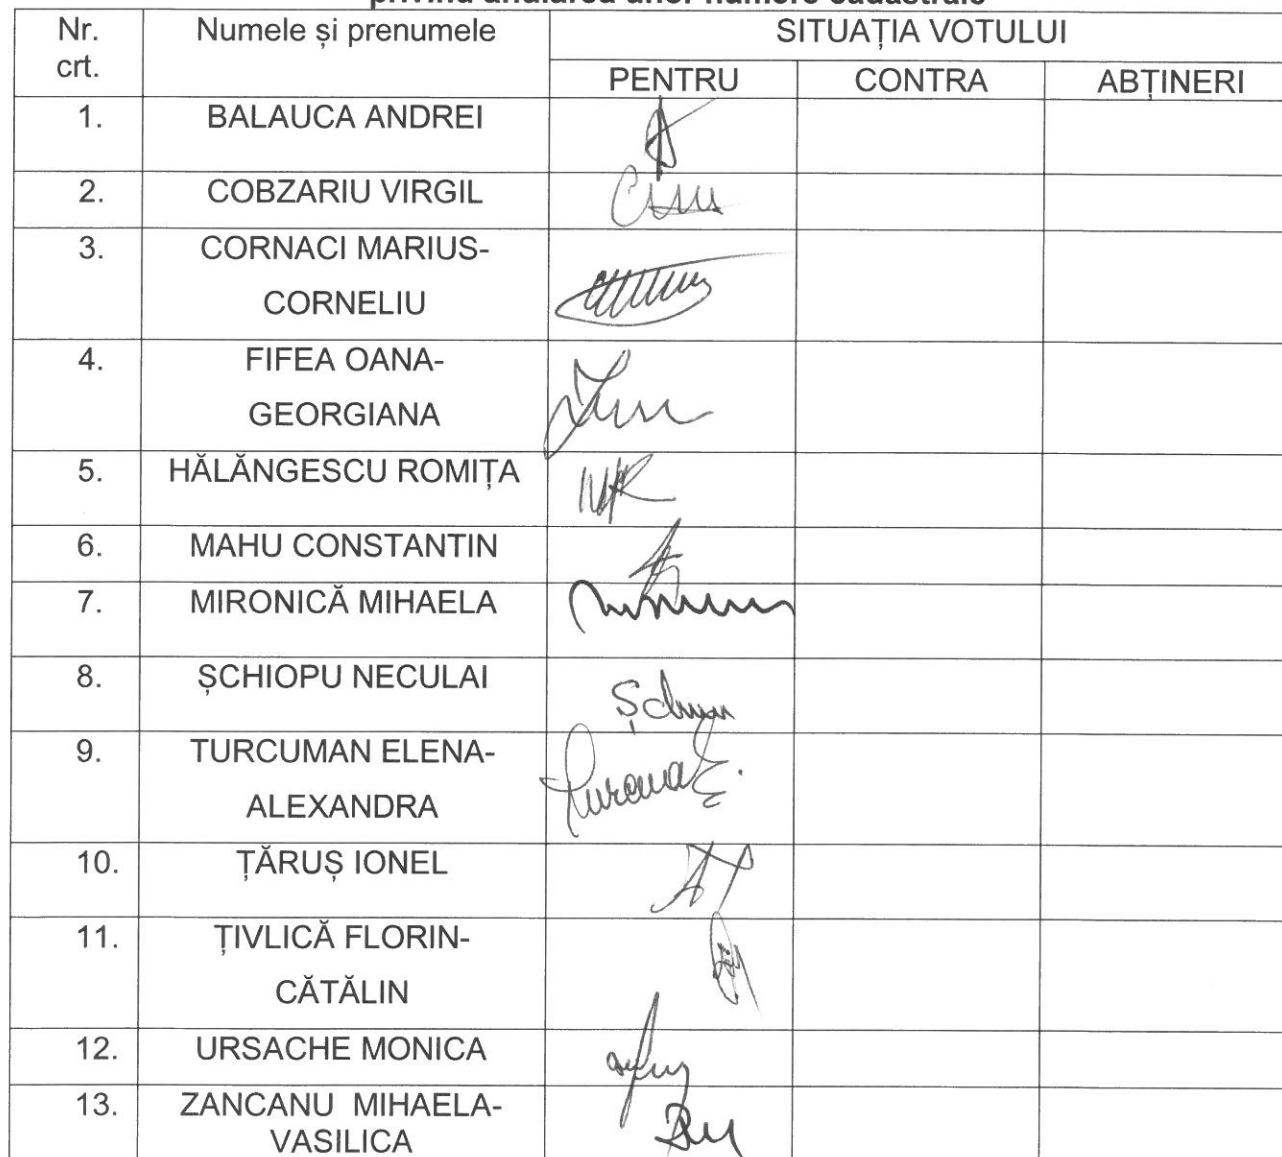 privind anularea unor numere cadastrale
Nr. crt. Numele și prenumele SITUAȚIA VOTULUI
PENTRU CONTRA ABȚINERI
1. BALAUCA ANDREI
2. COBZARIU VIRGIL
3. CORNACI MARIUS-
CORNELIU
4. FIFEA OANA-
GEORGIANA
5. HĂLĂNGESCU ROMIȚA
6. MAHU CONSTANTIN
7. MIRONICĂ MIHAELA
8. ȘCHIOPU NECULAI
9. TURCUMAN ELENA-
ALEXANDRA
10. ȚĂRUȘ IONEL
11. ȚIVLICĂ FLORIN-
CĂTĂLIN
12. URSACHE MONICA
13. ZANCANU MIHAELA-
VASILICA